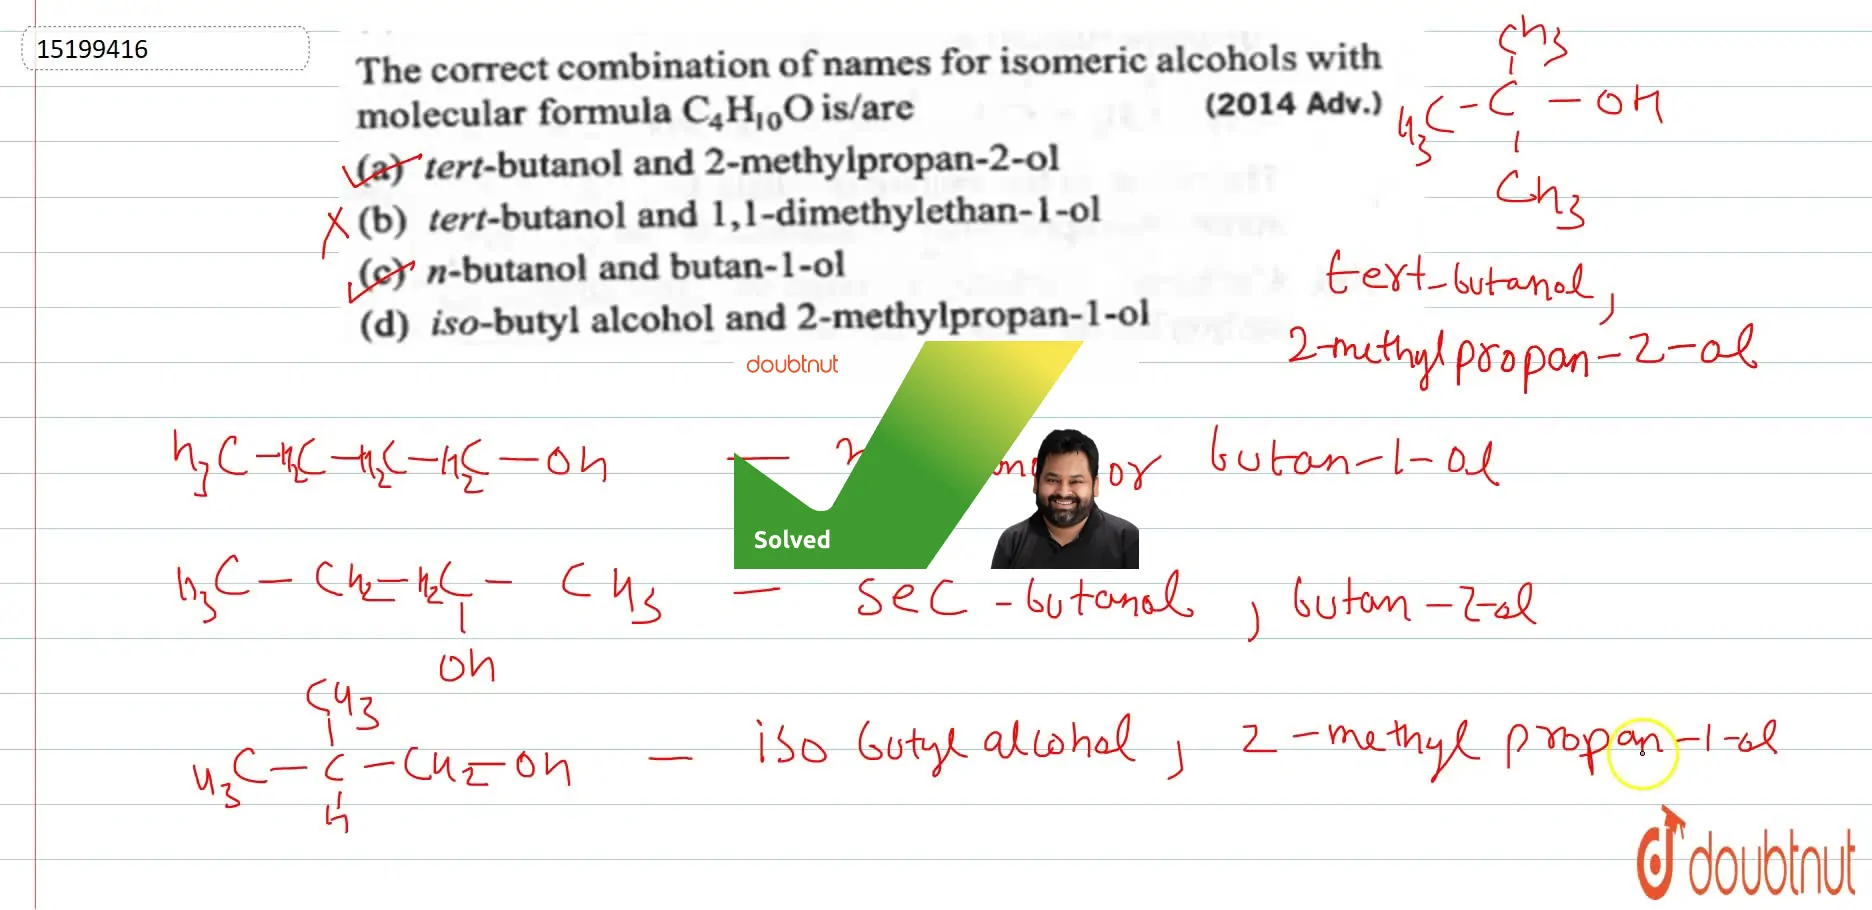 15199416
The correct combination of names for isomeric alcohols with
molecular formula C₄H₁₀O is/are (2014 Adv.)
(a) tert-butanol and 2-methylpropan-2-ol
(b) tert-butanol and 1,1-dimethylethan-1-ol
(c) n-butanol and butan-1-ol
(d) iso-butyl alcohol and 2-methylpropan-1-ol
CH₃
H₃C - C - OH
CH₃
tert-butanol,
2-methylpropan-2-ol
doubtnut
H₃C-H₂C-H₂C-H₂C-OH — or butan-1-ol
Solved
H₃C - CH₂-H₂C - CH₃ — sec-butanol, butan-2-ol
OH
CH₃
H₃C - C - CH₂-OH — iso butyl alcohol, 2-methyl propan-1-ol
H
doubtnut